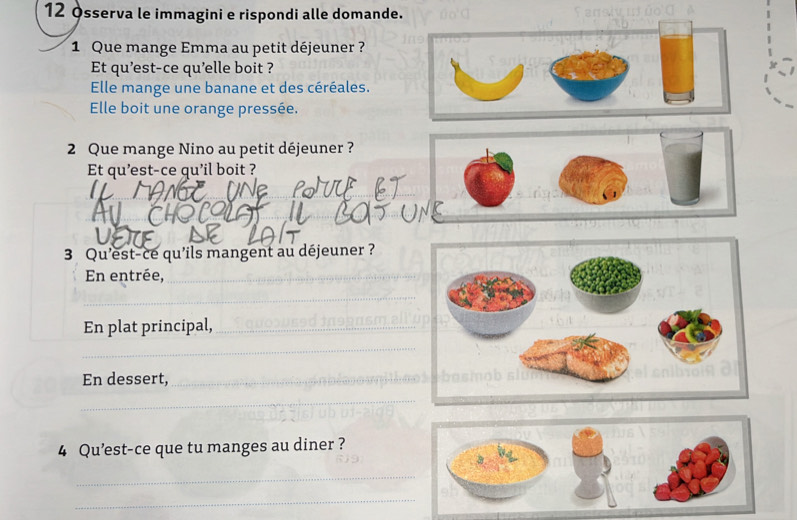 12 Osserva le immagini e rispondi alle domande.
1 Que mange Emma au petit déjeuner ?
Et qu'est-ce qu'elle boit ?
Elle mange une banane et des céréales.
Elle boit une orange pressée.
2 Que mange Nino au petit déjeuner ?
Et qu'est-ce qu'il boit ?
IL MANGE UNE POMME ET
AU CHOCOLAT IL BOIT UNE
VERE DE LAIT
3 Qu'est-ce qu'ils mangent au déjeuner ?
En entrée,
En plat principal,
En dessert,
4 Qu'est-ce que tu manges au dîner ?